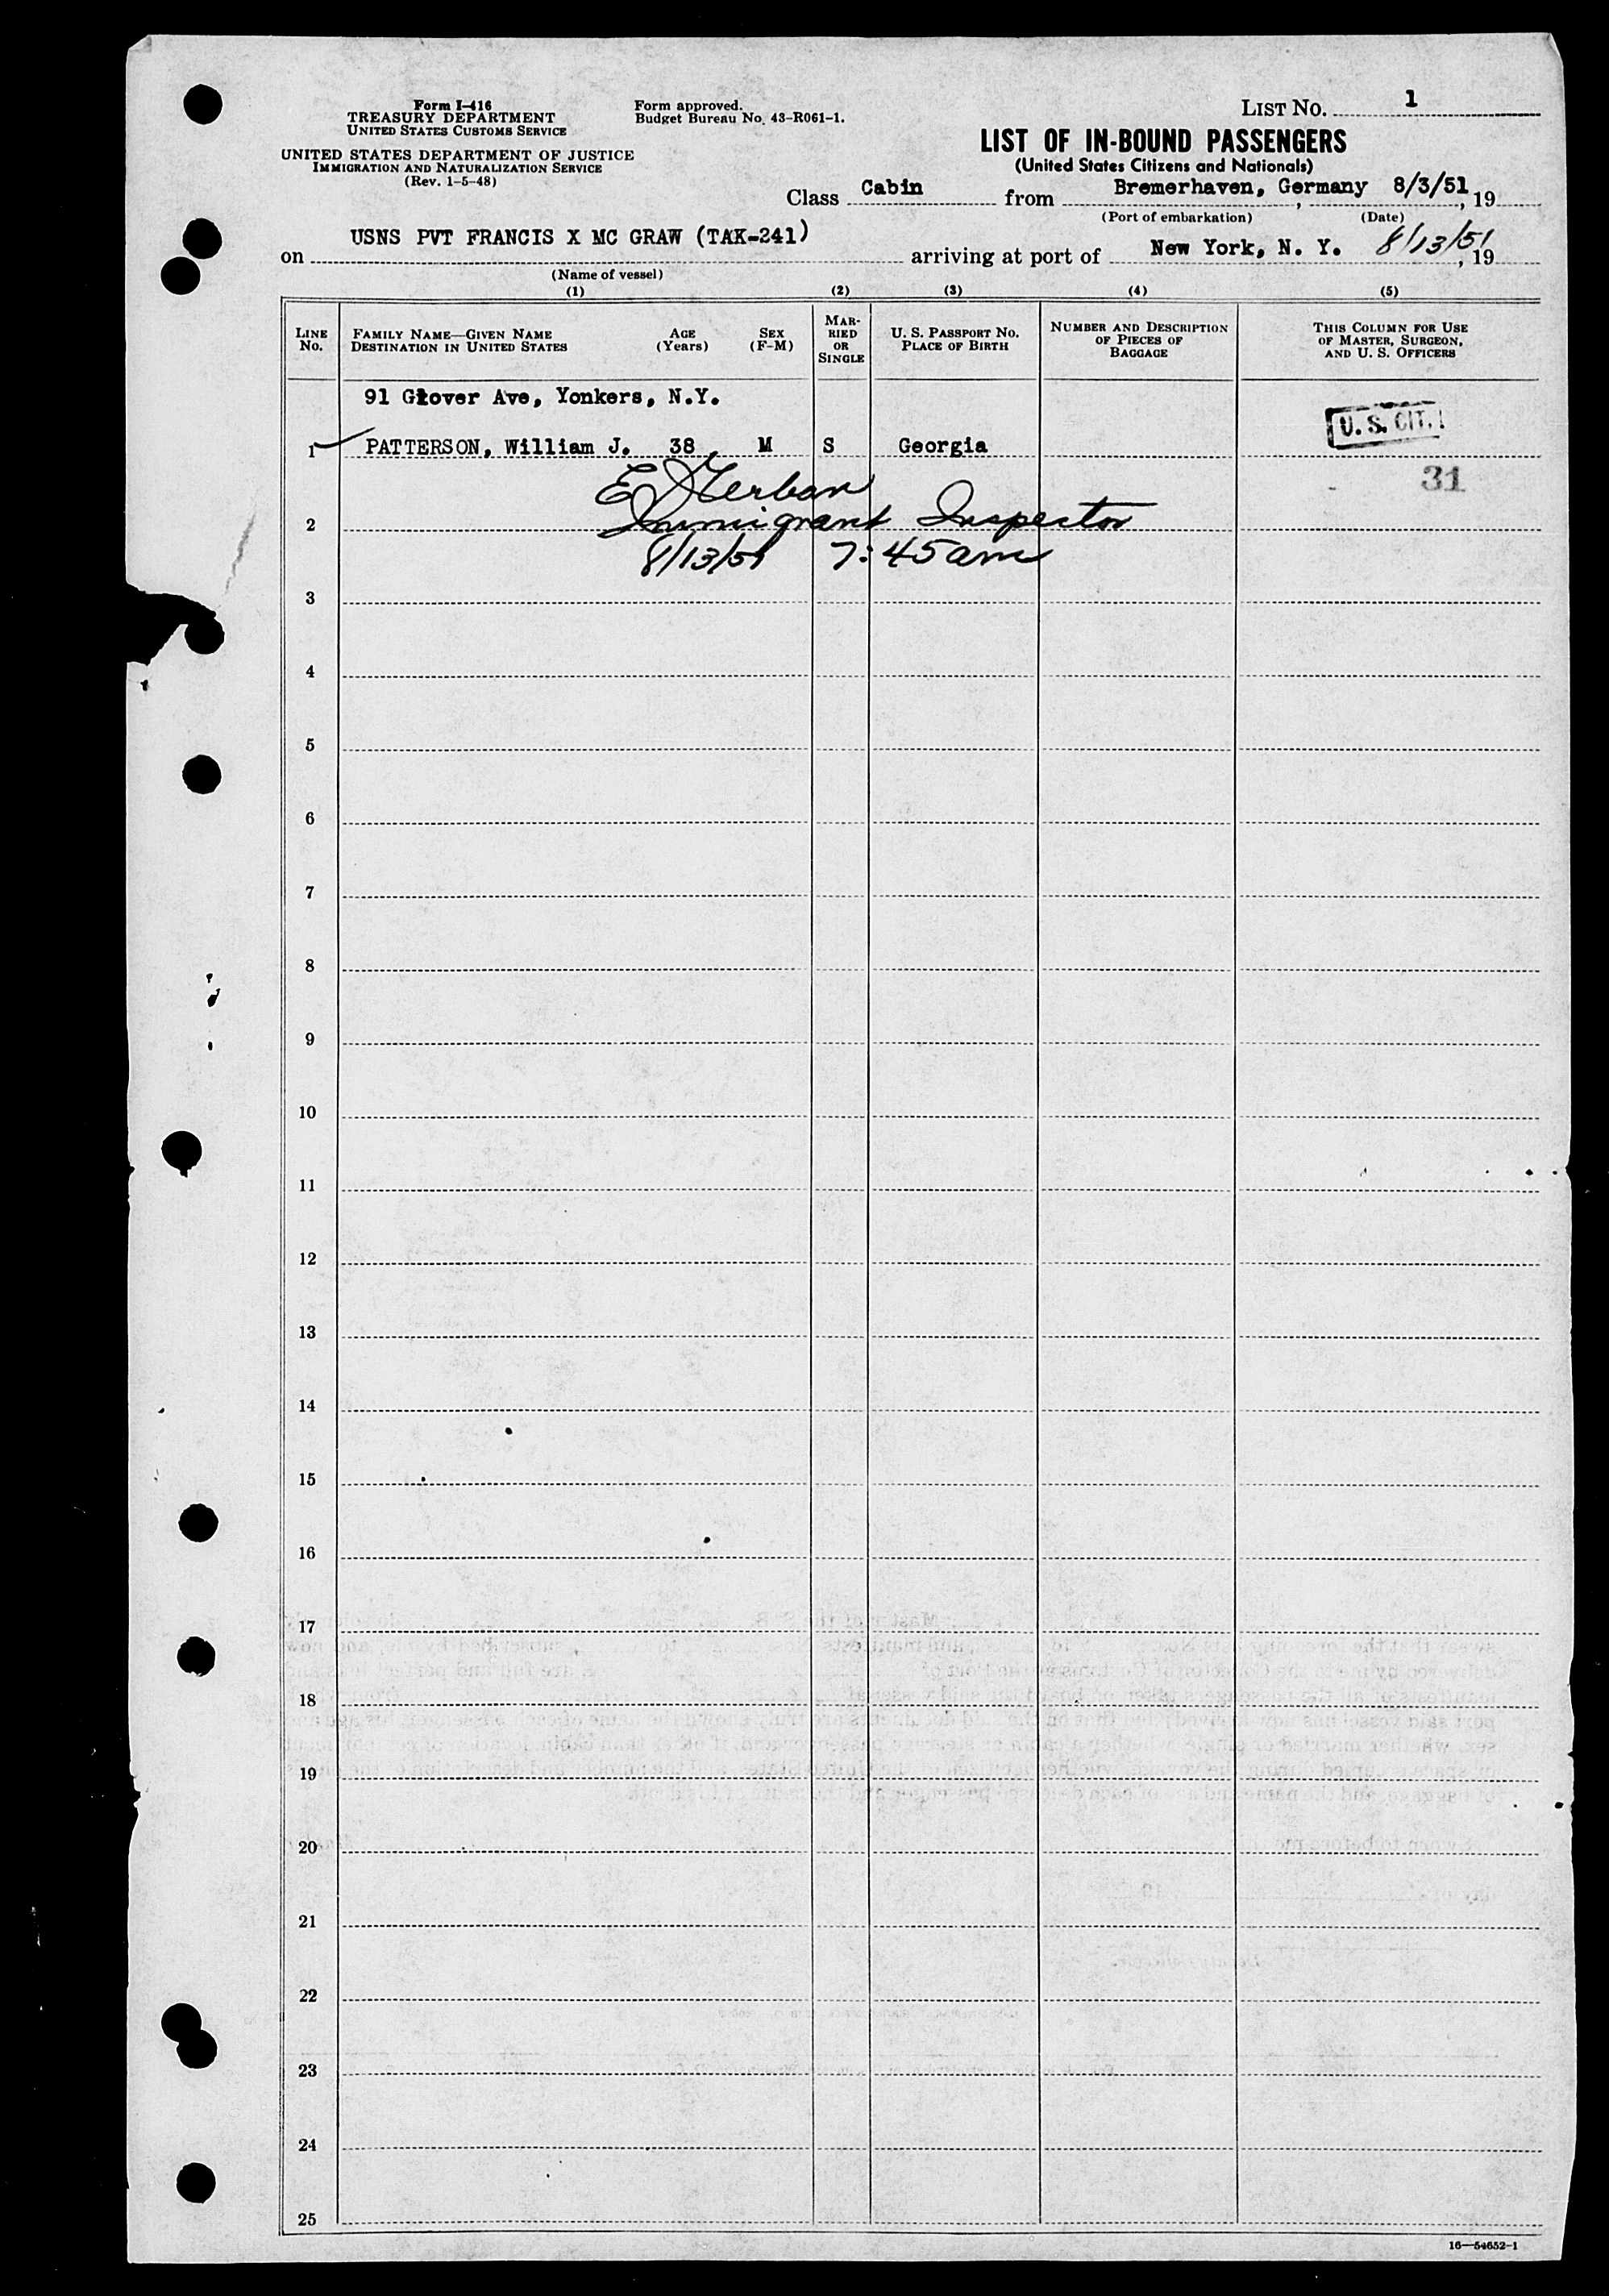 Form I-416
TREASURY DEPARTMENT
UNITED STATES CUSTOMS SERVICE
UNITED STATES DEPARTMENT OF JUSTICE
IMMIGRATION AND NATURALIZATION SERVICE
(Rev. 1-5-48)
Form approved.
Budget Bureau No. 43-R061-1.
LIST NO. 1
LIST OF IN-BOUND PASSENGERS
(United States Citizens and Nationals)
Class Cabin from Bremerhaven, Germany, 8/3/51, 19
(Port of embarkation) (Date)
on USNS PVT FRANCIS X MC GRAW (TAK-241) arriving at port of New York, N. Y. 8/13/51, 19
(Name of vessel)
(1) (2) (3) (4) (5)
LINE No. FAMILY NAME—GIVEN NAME DESTINATION IN UNITED STATES AGE (Years) SEX (F-M) MARRIED OR SINGLE U. S. PASSPORT NO. PLACE OF BIRTH NUMBER AND DESCRIPTION OF PIECES OF BAGGAGE THIS COLUMN FOR USE OF MASTER, SURGEON, AND U. S. OFFICERS
91 Glover Ave, Yonkers, N.Y.
1 PATTERSON, William J. 38 M S Georgia U. S. CIT.
31
2 Immigrant Inspector
8/13/51 7:45 am
3
4
5
6
7
8
9
10
11
12
13
14
15
16
17
18
19
20
21
22
23
24
25
16—54652-1